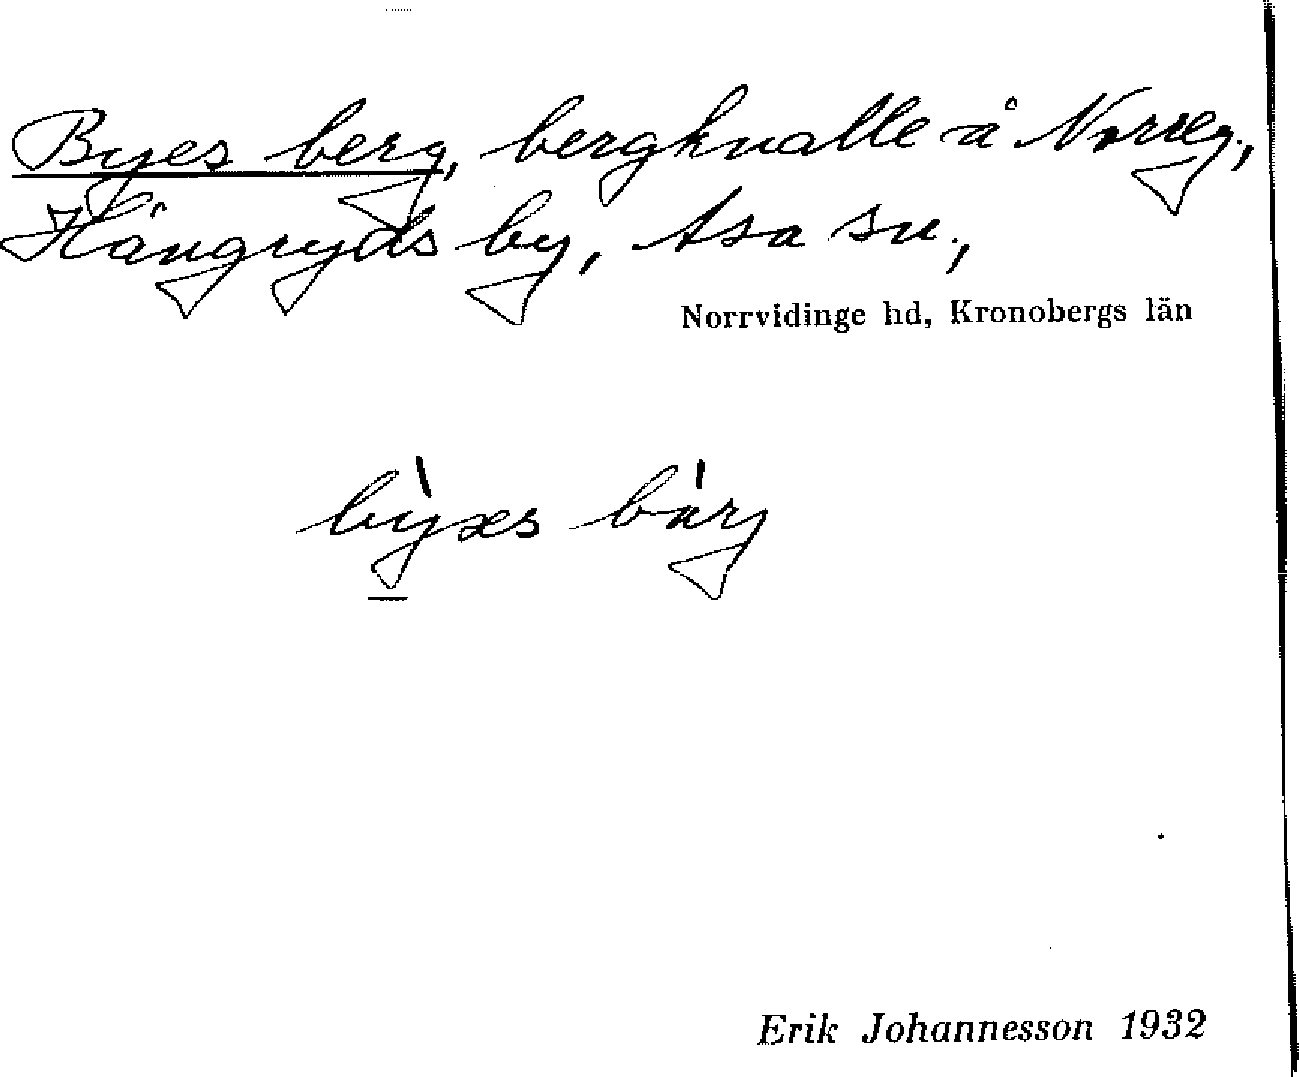 Byes berg, bergknalle å Norreg.,
Hängryds by, Asa sn.,
Norrvidinge hd, Kronobergs län
bỳæs bárj
Erik Johannesson 1932